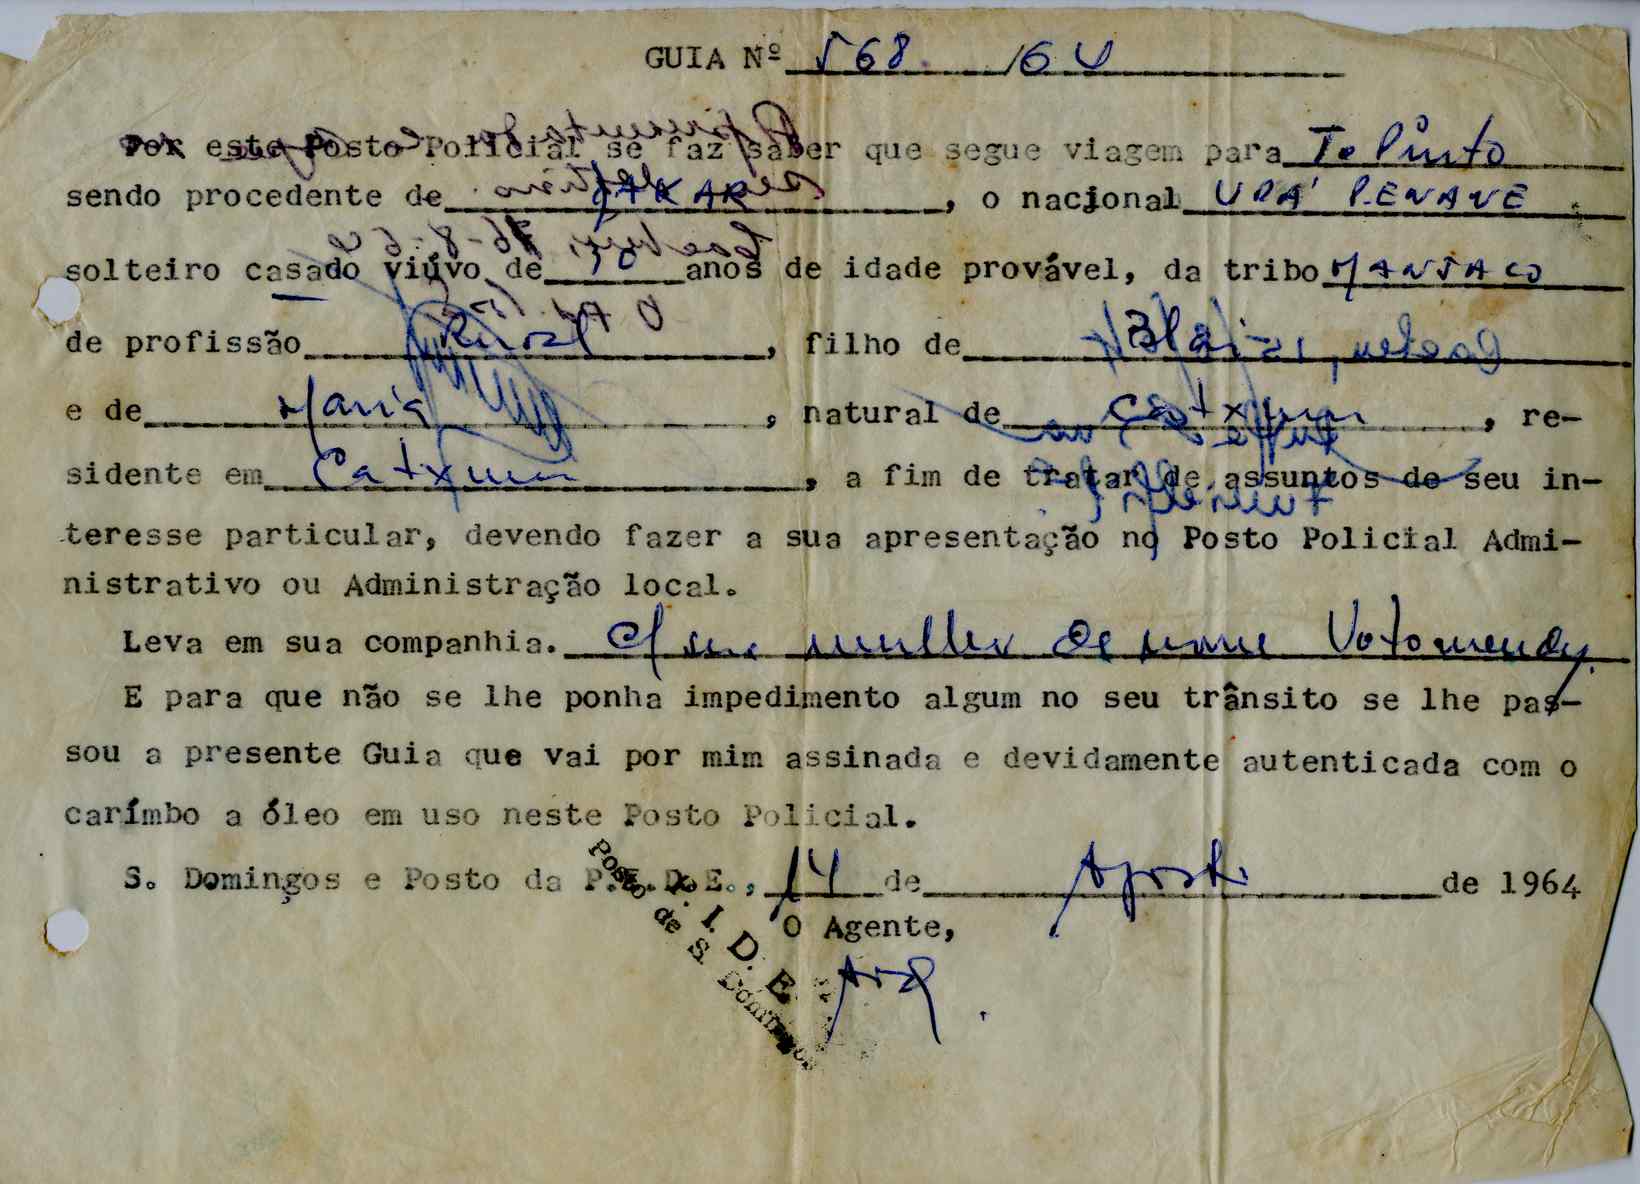 GUIA Nº 568 /64
Por este Posto Policial se faz saber que segue viagem para Te Pinto
sendo procedente de DAKAR, o nacional URÁ PENANE
solteiro casado viúvo de 30 anos de idade provável, da tribo MANJACO
de profissão Rural, filho de Blai
e de Maria, natural de Catxum, re-
sidente em Catxum, a fim de tratar de assuntos do seu in-
teresse particular, devendo fazer a sua apresentação no Posto Policial Admi-
nistrativo ou Administração local.
Leva em sua companhia. c/ sua mulher de nome Votomendy.
E para que não se lhe ponha impedimento algum no seu trânsito se lhe pas-
sou a presente Guia que vai por mim assinada e devidamente autenticada com o
carímbo a óleo em uso neste Posto Policial.
S. Domingos e Posto da P.I.D.E., 14 de Agosto de 1964
O Agente,
P. I. D. E.
Posto de S. Domingos